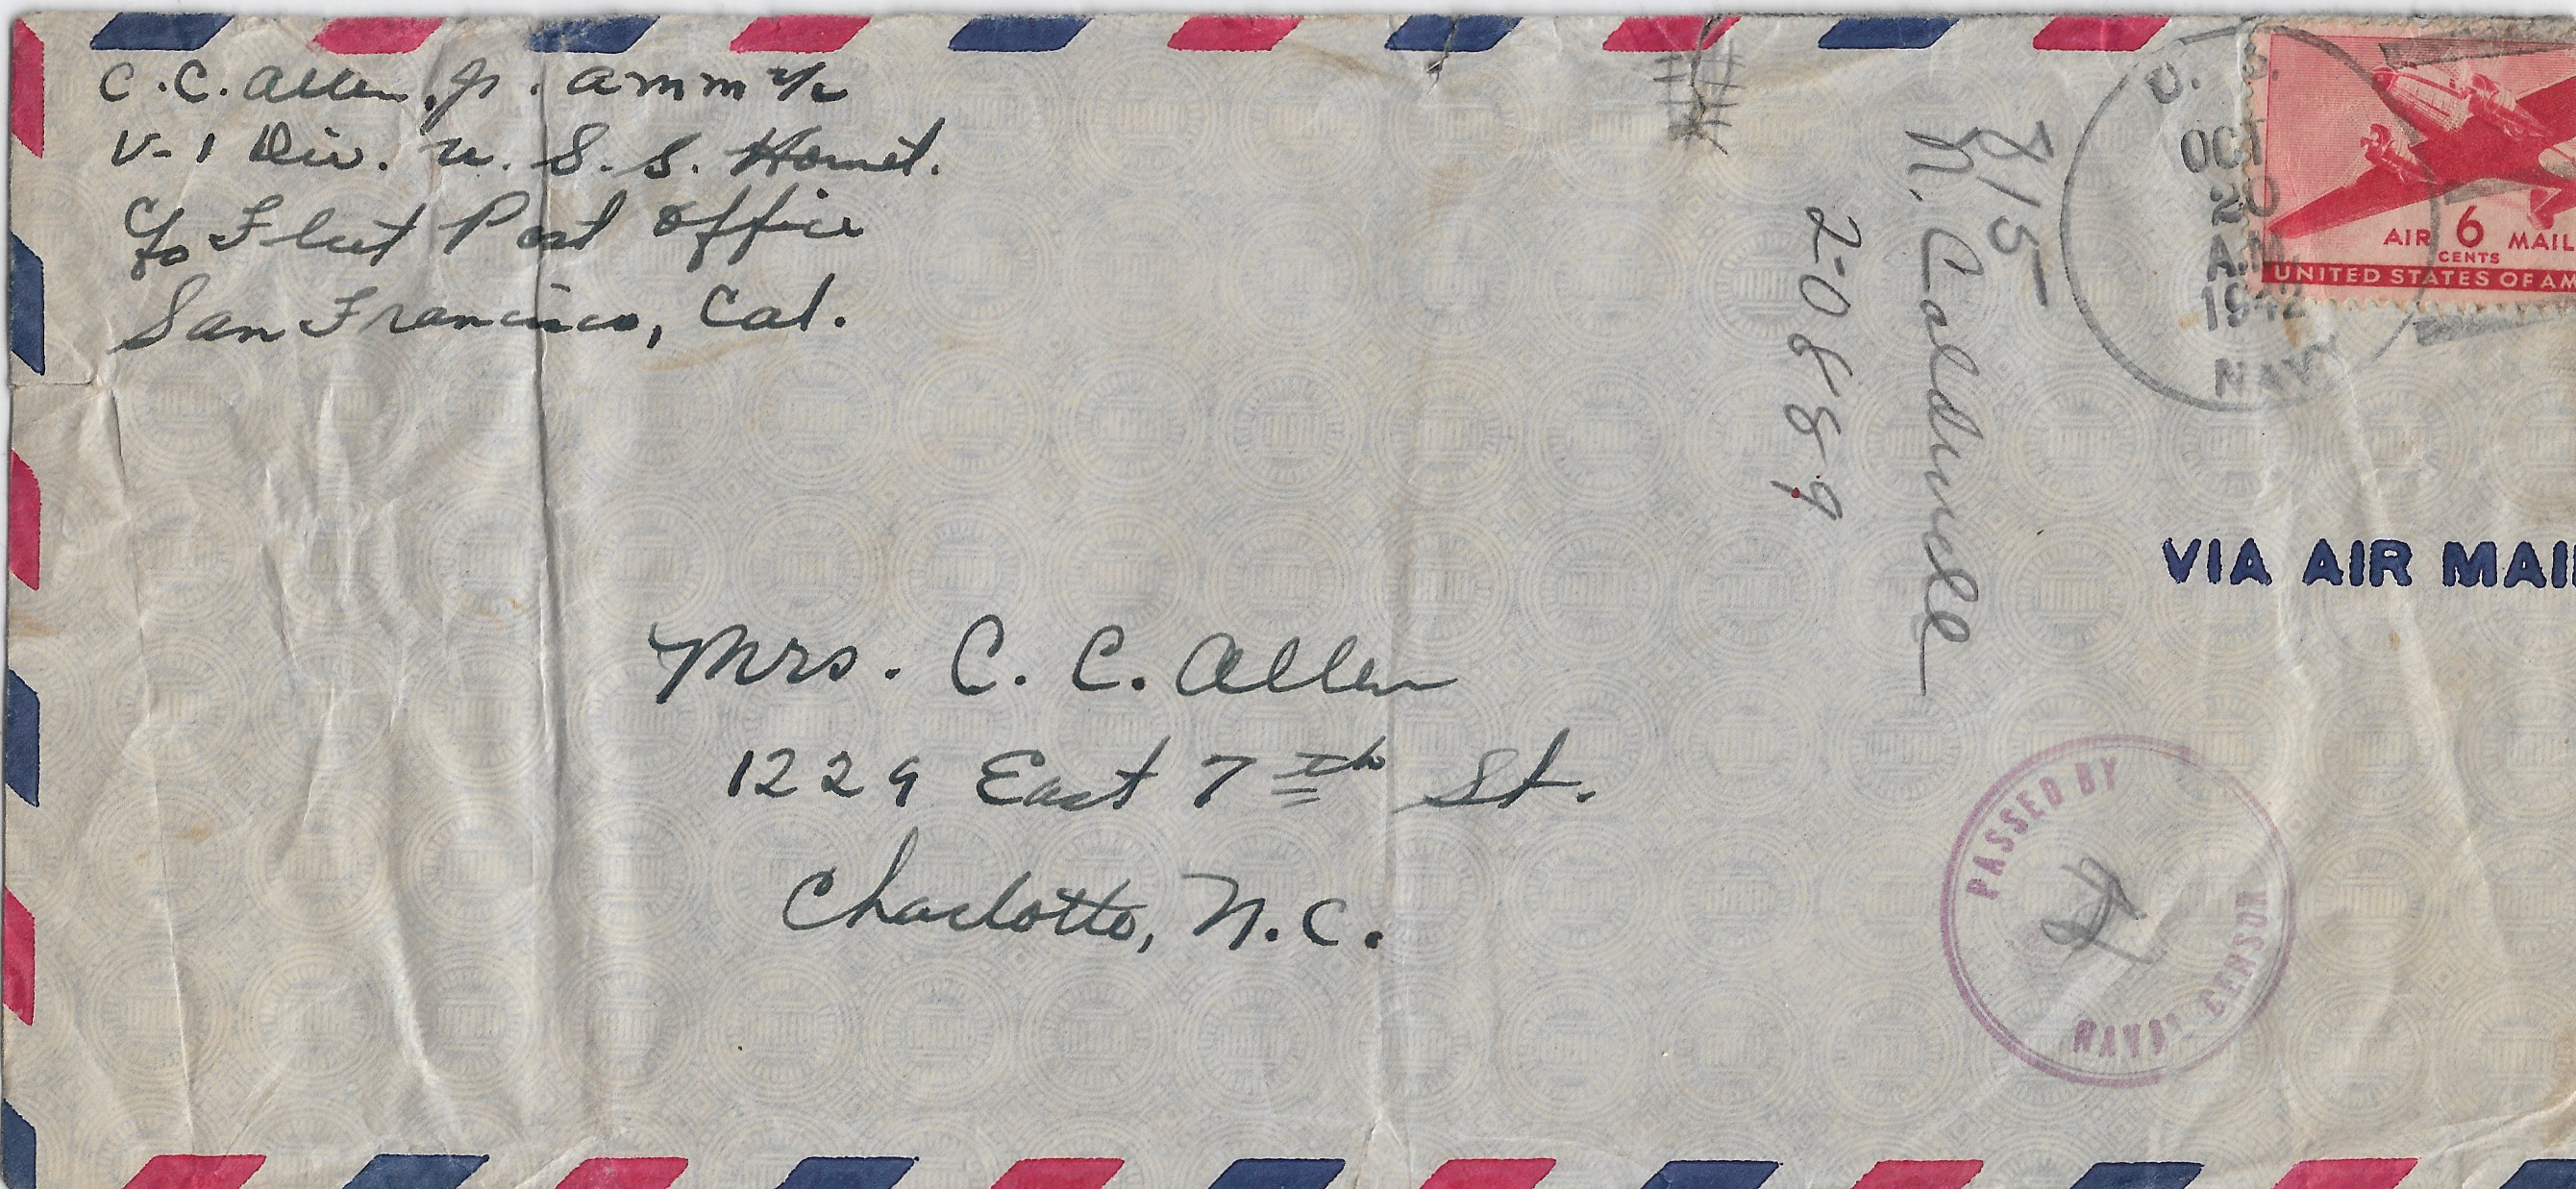 C. C. Allen, Jr. AMM 2/c
V-1 Div. U. S. S. Hornet.
c/o Fleet Post Office
San Francisco, Cal.
815
N. Caldwell
2-0889
U. S.
OCT
20
A.M.
1942
NAVY
AIR 6 MAIL
CENTS
UNITED STATES OF AM
VIA AIR MAI
Mrs. C. C. Allen
1229 East 7th St.
Charlotte, N.C.
PASSED BY
NAVAL CENSOR